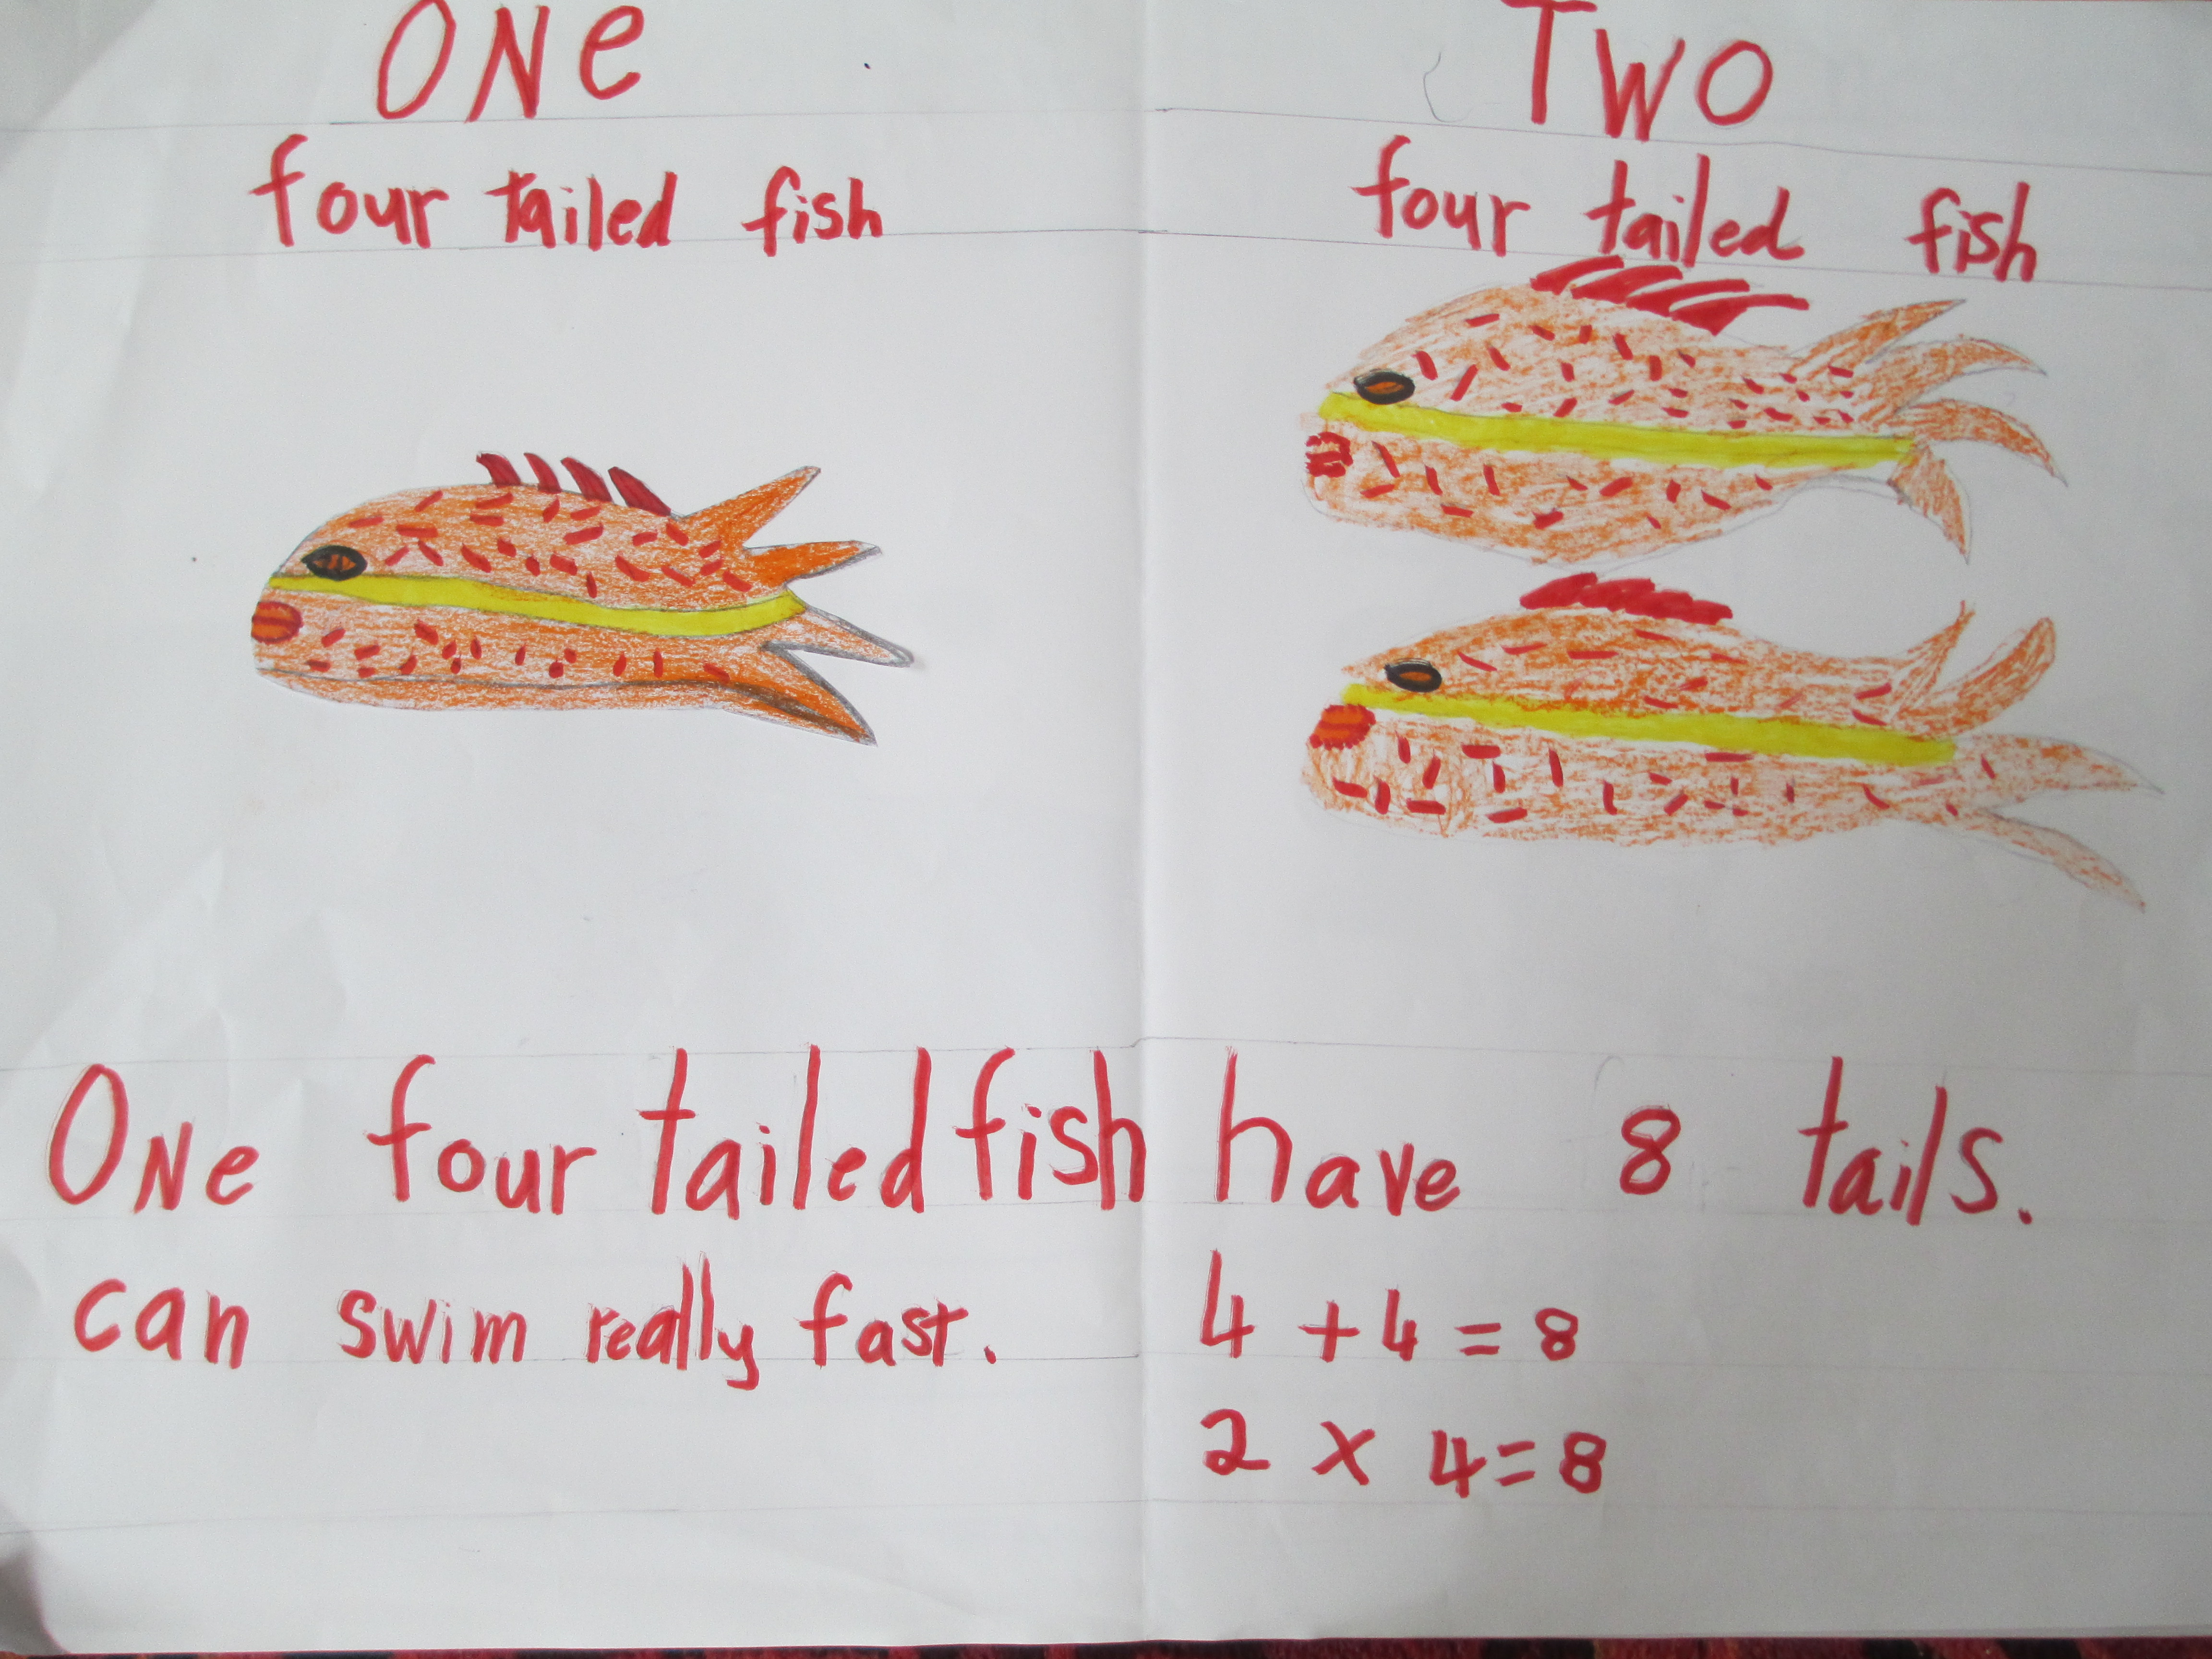 ONe
four tailed fish
One four tailed fish
can swim really fast.
TWO
four tailed fish
have 8 tails.
4 + 4 = 8
2 x 4 = 8